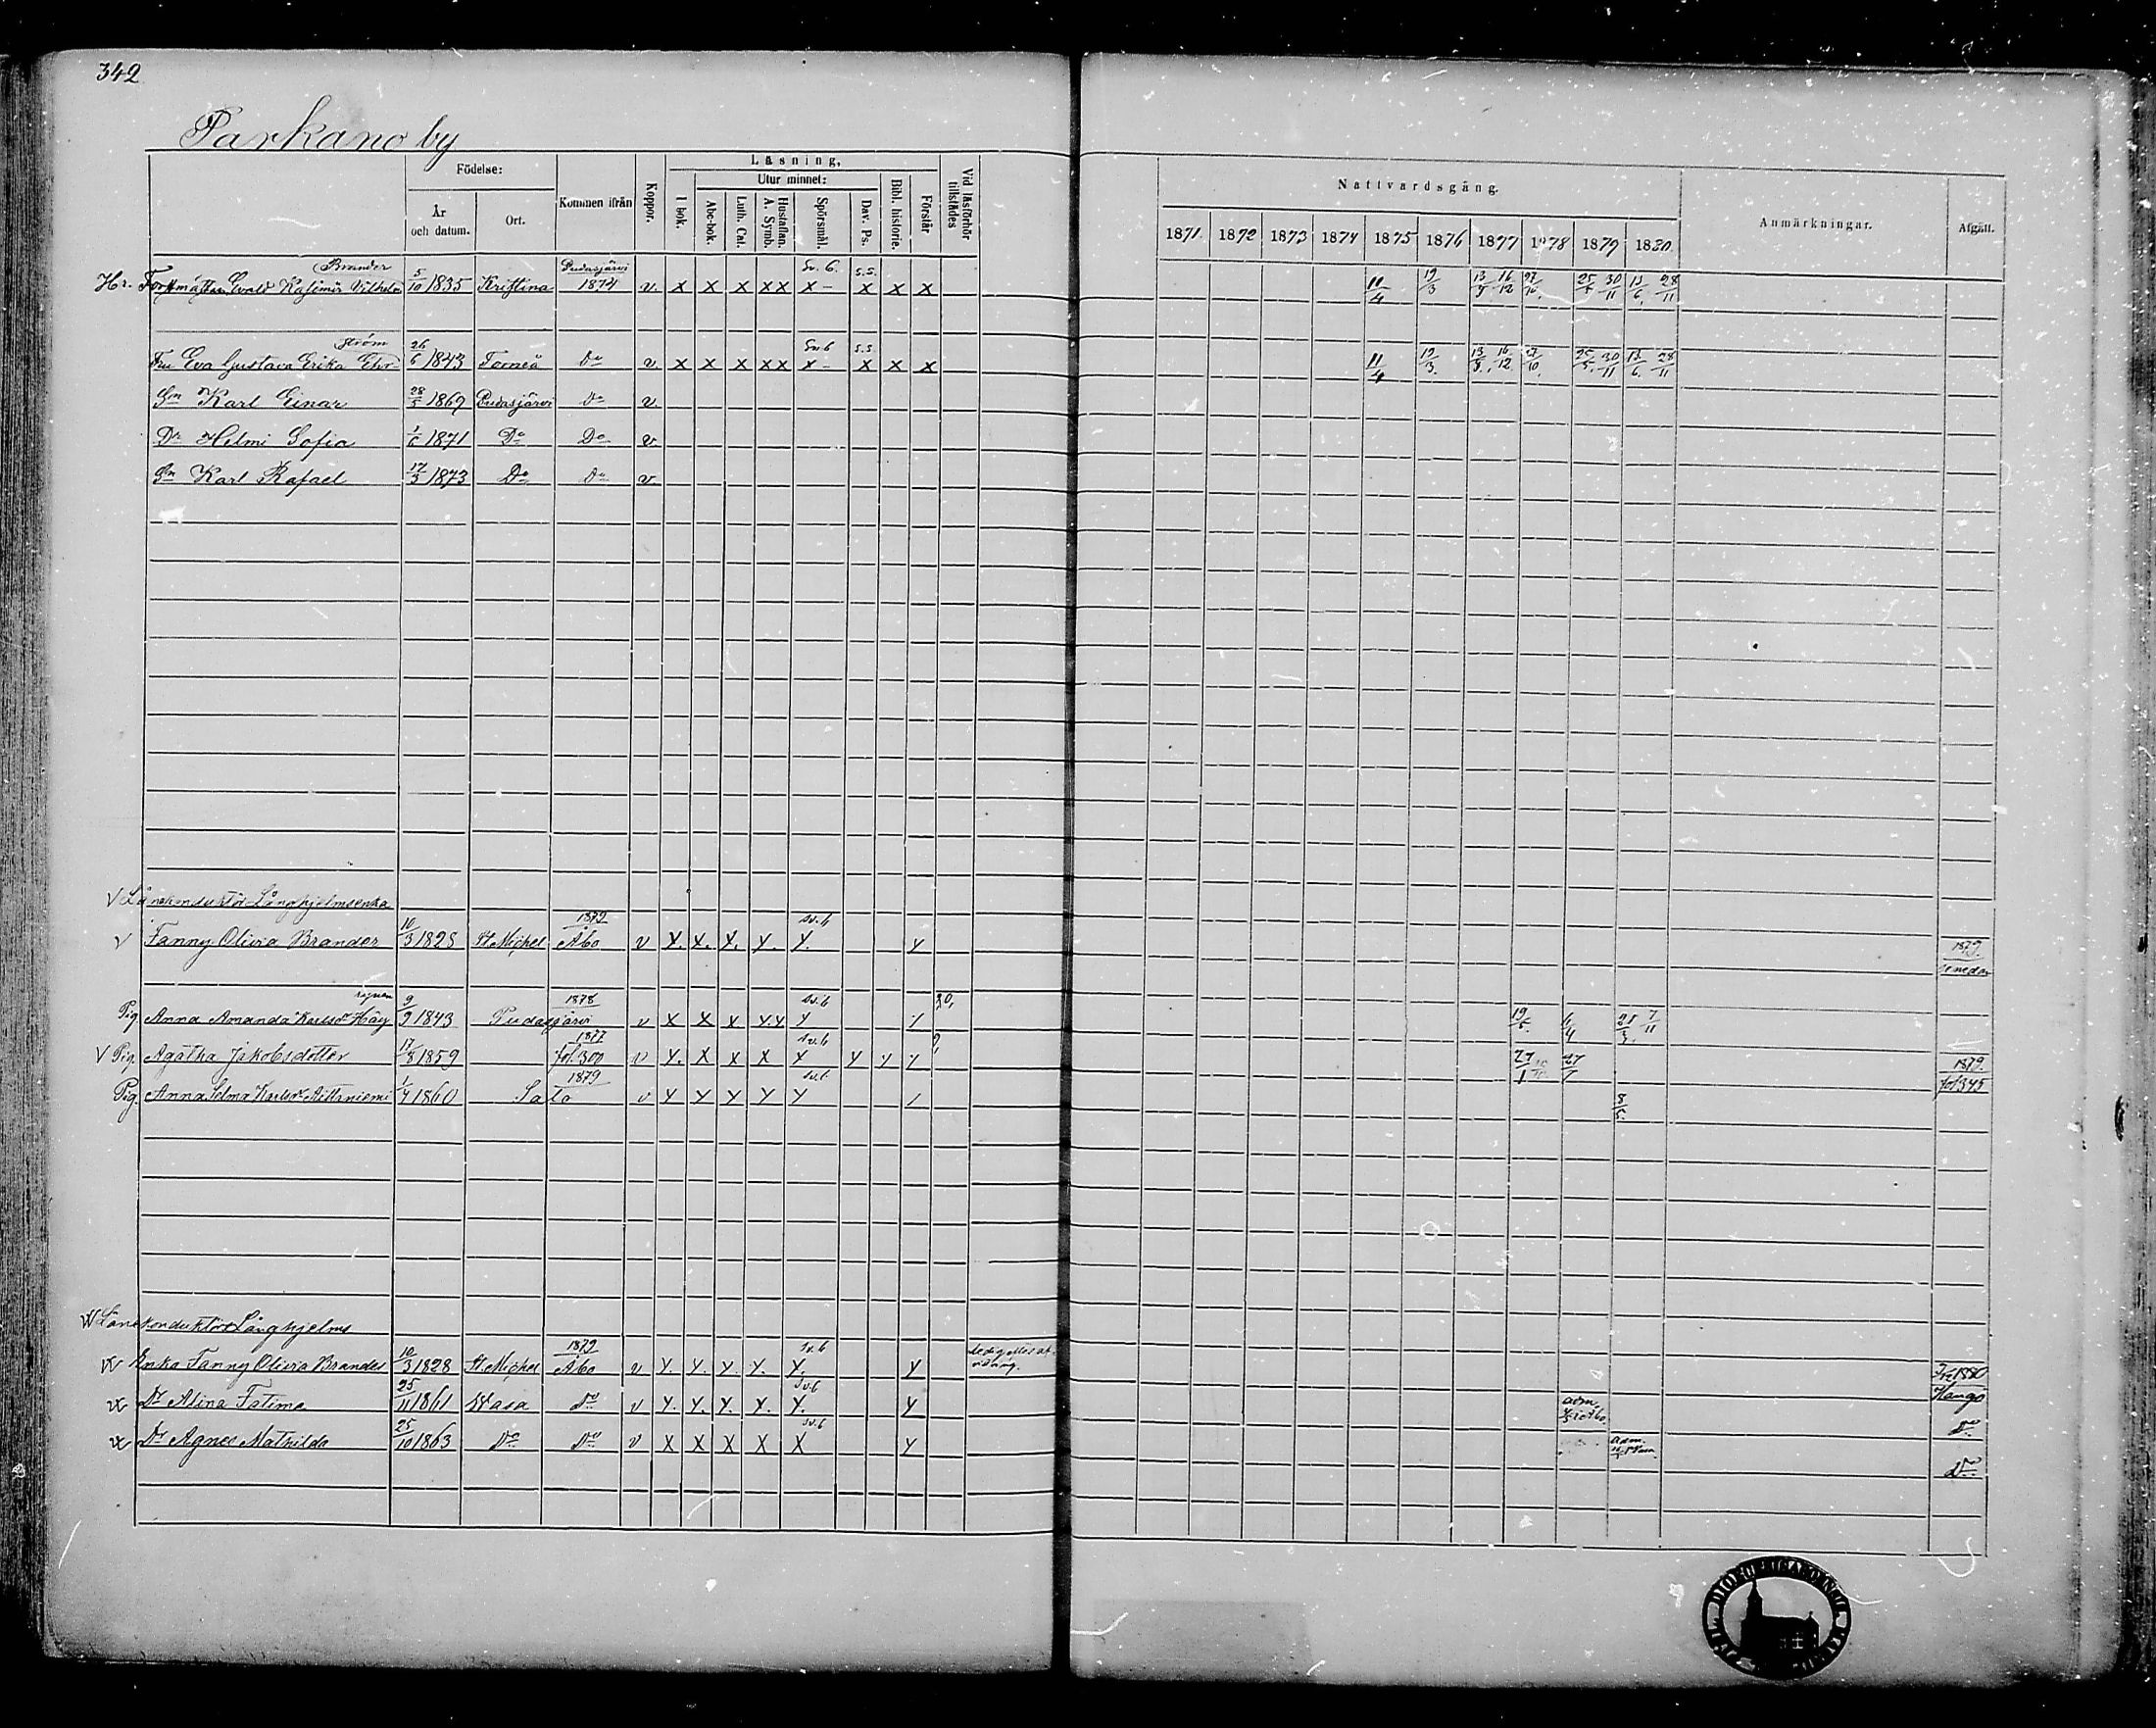 342
Parkano by
Födelse: Kommen ifrån Koppor. Läsning, Vid läsförhör tillstädes Nattvardsgång. Anmärkningar. Afgått.
År och datum. Ort. I bok. Utur minnet: Bibl. historie. Förstår
Abc-bok. Luth. Cat. Hustaflan. A. Symb. Spörsmål. Dav. Ps. 1871 1872 1873 1874 1875 1876 1877 1878 1879 1880
Brander Pudasjärvi Sv. 6. s.s.
Hr. Forstmästaren Evald Kasimir Vilhelm 5/10 1835 Kristina 1874 v x x x x x x – x x x 11/4 19/3 16/12 27/10 30/11 13/6 28/11
ström Sv. 6 s.s.
Fru Eva Gustava Erika Ehr- 26/6 1843 Torneå Do v x x x x x x – x x x 11/4 19/3 16/12 27/10 30/11 13/6 28/11
Sn Karl Einar 28/5 1869 Pudasjärvi Do v
Dr Helmi Sofia 1/6 1871 Do Do v
Sn Karl Rafael 17/3 1873 Do Do v
V Länekonduktör Långhjelms enka
1879 sv. 6
V Fanny Olivia Brander 10/3 1828 St. Michel Åbo v x. x. x. x. x. x 1879 nedan
1878 sv. 6
Pig. Anna Amanda Karlsdr Häy- rynen 9/9 1843 Pudasjärvi v x x x x x x / 19/5 6/4 7/11
1877 sv. 6
V Pig. Agatha Jakobsdotter 17/8 1859 fol. 300 v x. x x x x x x / 27/1 1879
1879 sv. 6 fol. 345
Pig. Anna Selma Karlsdr Aittaniemi 1/4 1860 Salo v x x x x x /
W Länekonduktör Långhjelms
1879 sv. 6
Enka Fanny Olivia Brander 10/3 1828 St. Michel Åbo v x. x. x. x. x. x 1880
sv. 6 Hangö
Dr Alina Fatime 25/11 1861 Wasa Do v x. x. x. x. x. x adm. Do
sv. 6
Dr Agnes Mathilda 25/10 1863 Do Do v x x x x x x adm. Do